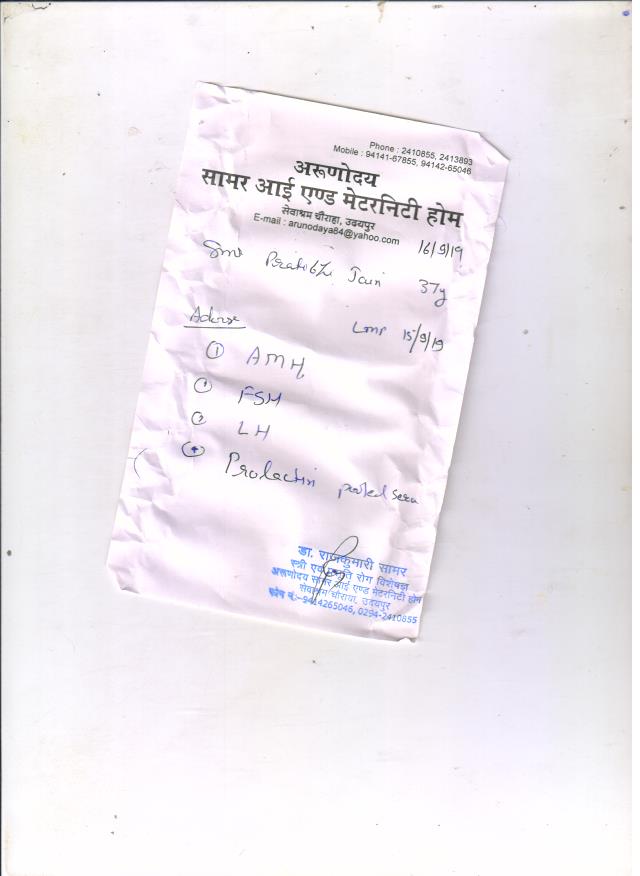 Phone : 2410855, 2413893
Mobile : 94141-67855, 94142-65046
अरूणोदय
सामर आई एण्ड मेटरनिटी होम
सेवाश्रम चौराहा, उदयपुर
E-mail : arunodaya84@yahoo.com
16/9/19
Smt Jain 37y
Advise LMP 15/9/19
① AMH
FSH
LH
④ Prolactin pooled sera
डा. राजकुमारी सामर
स्त्री एवं प्रसूति रोग विशेषज्ञ
अरूणोदय सामर आई एण्ड मेटरनिटी होम
सेवाश्रम चौराया, उदयपुर
फोन नं.:-9414265046, 0294-2410855